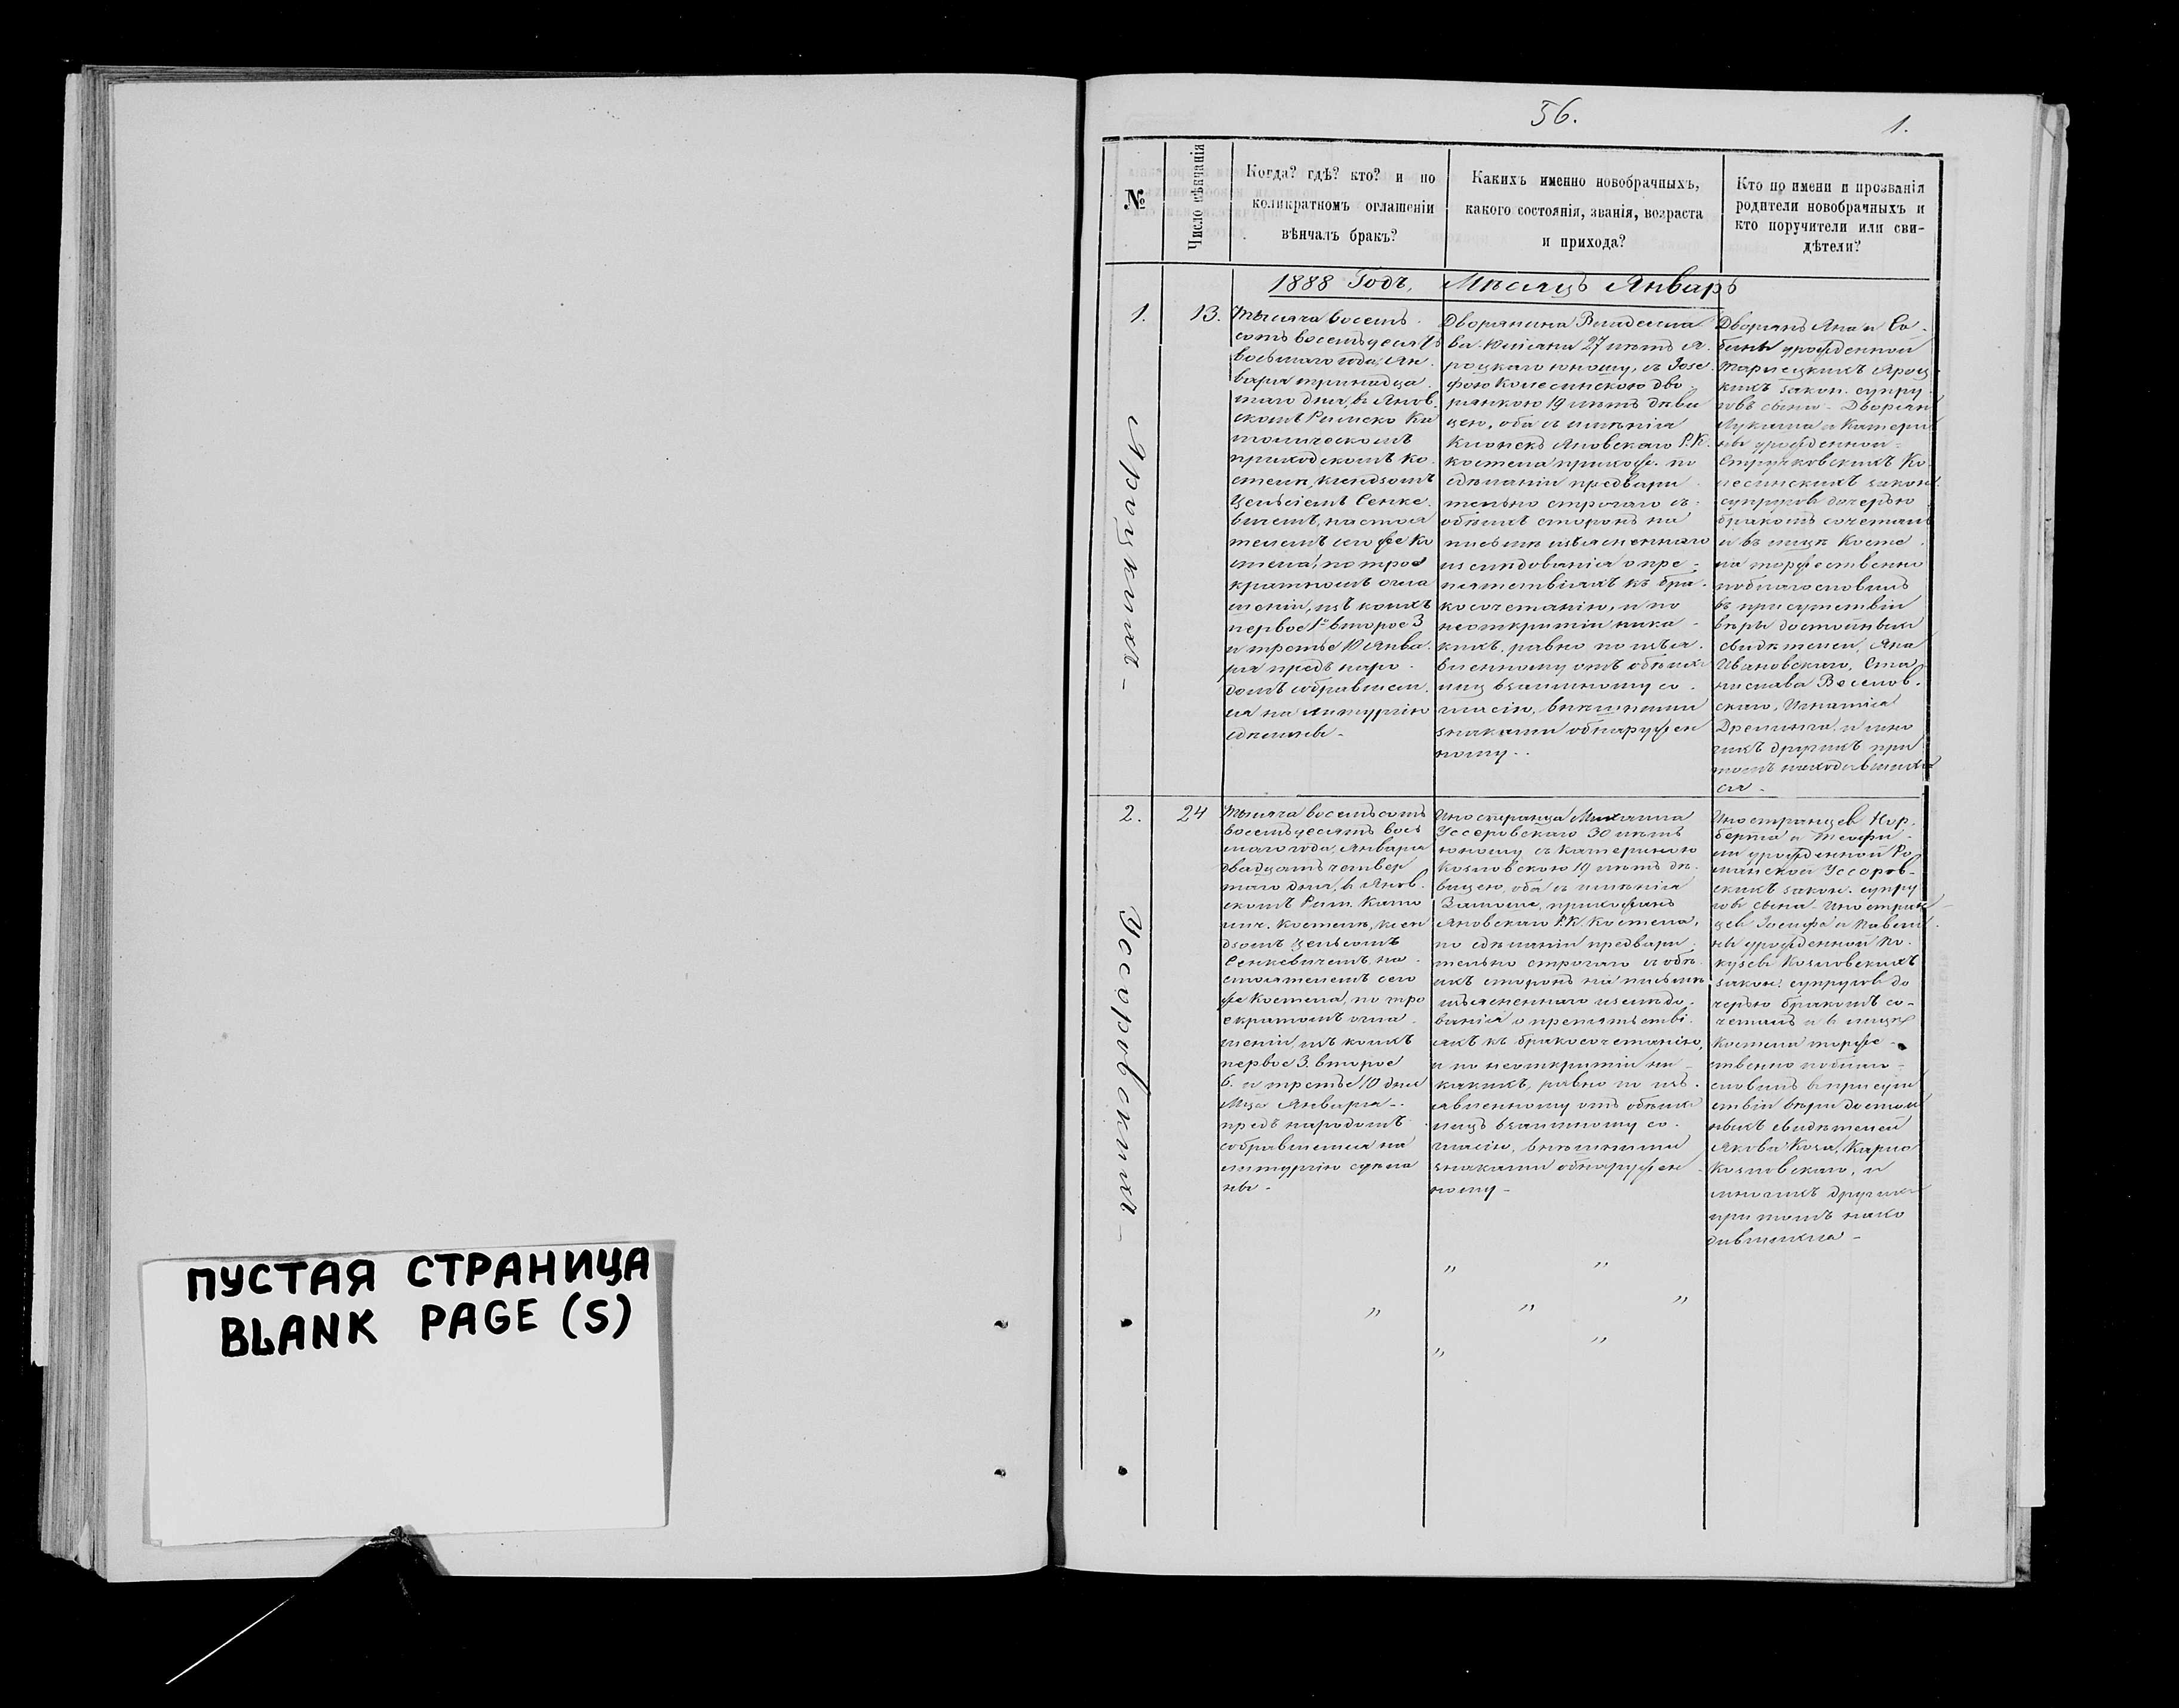 ПУСТАЯ СТРАНИЦА
BLANK PAGE (S)
56.
1.
№
Число вѣнчанія
Когда? гдѣ? кто? и по
коликратномъ оглашеніи
вѣнчалъ бракъ?
Какихъ именно новобрачныхъ,
какого состоянія, званія, возраста
и прихода?
Кто по имени и прозванія
родители новобрачныхъ и
кто поручители или сви-
дѣтели?
1888 Годъ, Мѣсяцъ Январь
1.
13.
Яроцкихъ -
Тысяча восемь
сотъ восемьдесятъ
восьмаго года, Ян
варя тринадца
таго дня, въ Янов
скомъ Римско Ка
толическомъ
приходскомъ Ко
стелѣ, ксендзомъ
Сенке
вичемъ, настоя
телемъ сего же Ко
стела, по трое
кратномъ огла
шеніи, изъ коихъ
первое 1е второе 3
и третье 10 Янва
ря предъ наро
домъ собравшем
ся на литургію
сдѣланы -
Дворянина
27 лѣтъ Я
роцкаго юношу, съ Іозе
фою Колесинскою дво
рянкою 19 лѣтъ дѣви
цею, оба съ имѣнія
Яновскаго Р.К.
костела прихож. по
сдѣланіи предвари
тельно строгаго съ
обѣихъ сторонъ на
письмѣ изъясненнаго
изслѣдованія о пре-
пятствіяхъ къ бра-
косочетанію, и по
неоткрытіи ника
кихъ, равно по изъя
вленному отъ обѣихъ
лицъ взаимному со
гласію, внѣшними
знаками обнаружен
ному -
Дворянъ Яна и Са
бины урожденной
Яроц
кихъ закон. супру
говъ сына - Дворянъ
Лукаша и Катери
ны урожденной
Стручковскихъ Ко
лесинскихъ закон.
супруговъ дочерью
бракомъ сочеталъ
и въ лицѣ Косте
ла торжественно
поблагословилъ
въ присутствіи
вѣры достойныхъ
свидѣтелей, Яна
Ивановскаго, Ста
нислава Веселов
скаго, Игнатія
и мно
гихъ другихъ при
томъ находившихъ
ся -
2.
24
Уссоровскихъ -
Тысяча восемьсотъ
восемьдесятъ вось
маго года, Января
двадцать четвер
таго дня, въ Янов
скомъ Рим. Като
лич. Костелѣ, ксен
дзомъ
Сенкевичемъ, на
стоятелемъ сего
же Костела, по тро
екратномъ огла
шеніи, изъ коихъ
первое 3. второе
6. и третье 10 дня
Мца Января -
предъ народомъ
собравшемся на
литургію сдѣла
ны -
Иностранца Михаила
Уссоровскаго 30 лѣтъ
юношу съ Катериною
Козловскою 19 лѣтъ дѣ
вицею, оба съ имѣнія
прихожанъ
Яновскаго Р.К. Костела,
по сдѣланіи предвари
тельно строгаго съ обѣ
ихъ сторонъ на письмѣ
изъясненнаго изслѣдо
ванія о препятстві
яхъ къ бракосочетанію,
и по неоткрытіи ни
какихъ, равно по изъ
явленному отъ обѣихъ
лицъ взаимному со
гласію, внѣшними
знаками обнаружен
ному -
Иностранцевъ Нор
берта и Теофи
ли урожденной Ро
манской Уссоров
скихъ закон. супру
говъ сына - Иностран
цевъ Іосифа и Павли
ны урожденной
Козловскихъ
закон. супруговъ до
черью бракомъ со
четалъ и въ лицѣ
Костела торже
ственно поблаго
словилъ въ присут
ствіи вѣры достой
ныхъ свидѣтелей
Якова
Козловскаго, и
многихъ другихъ
при томъ нахо
дившихся -